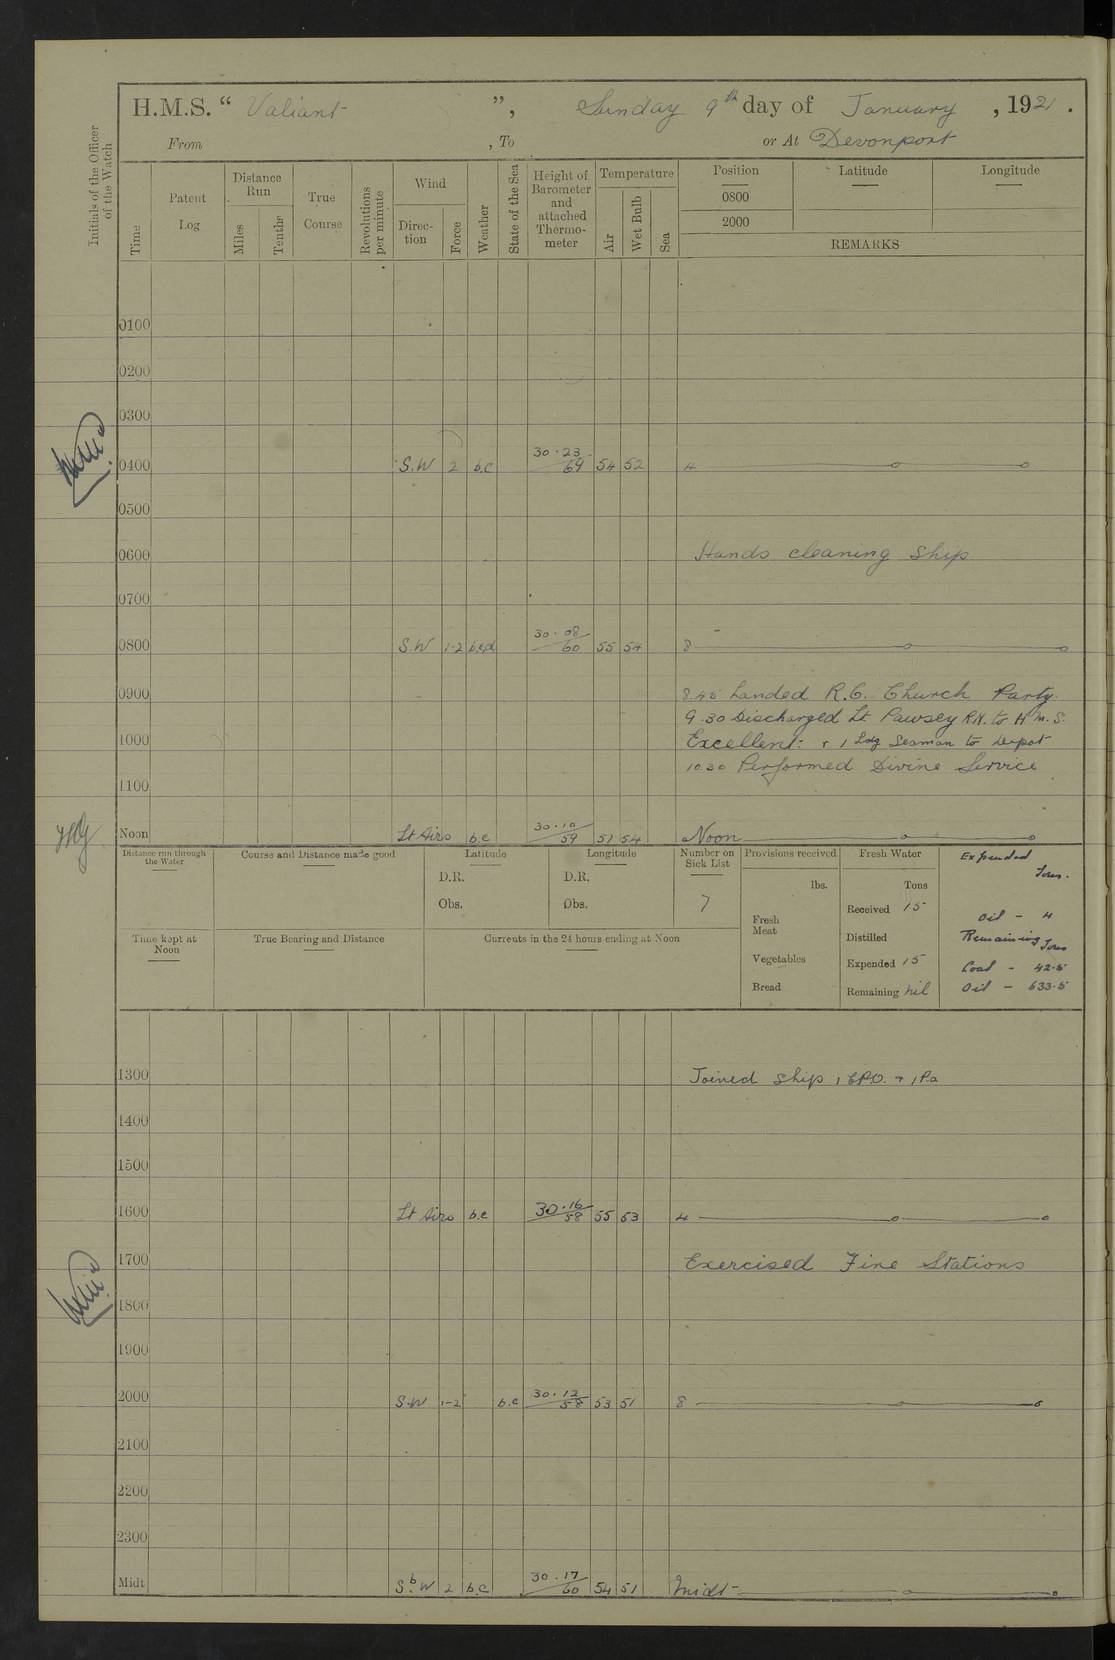 H.M.S. “ Valiant ”, Sunday 9th day of January , 1921 .
From , To or At Devonport
Initials of the Officer of the Watch
Time
Patent Log
Distance Run
Miles
Tenths
True Course
Revolutions per minute
Wind
Direction
Force
Weather
State of the Sea
Height of Barometer and attached Thermometer
Temperature
Air
Wet Bulb
Sea
Position
0800
2000
Latitude
Longitude
REMARKS
0100
0200
0300
0400 S.W 2 b.c 30.23 69 54 52 4
0500
0600 Hands cleaning ship
0700
0800 S.W 1-2 b.c.d 30.08 60 55 54 8
0900 8.45 Landed R.C. Church Party.
9.30 Discharged Lt Pawsey R.N. to H.M.S.
1000 Excellent: + 1 Ldg Seaman to Depot
10.30 Performed Divine Service
1100
Noon Lt Airs b.c 30.10 59 57 54 Noon
Distance run through the Water
Course and Distance made good
Latitude
D.R.
Obs.
Longitude
D.R.
Obs.
Number on Sick List
7
Provisions received
lbs.
Fresh Meat
Vegetables
Bread
Fresh Water
Tons
Received 15
Distilled
Expended 15
Remaining nil
Expended
Tons.
Oil - 4
Remaining Tons
Coal - 42.5
Oil - 633.5
Time kept at Noon
True Bearing and Distance
Currents in the 24 hours ending at Noon
1300 Joined ship 1 C.P.O. + 1 P.O
1400
1500
1600 Lt Airs b.c 30.16 58 55 53 4
1700 Exercised Fire Stations
1800
1900
2000 S.W 1-2 b.c 30.12 58 53 51 8
2100
2200
2300
Midt SbW 2 b.c 30.17 60 54 51 Midt